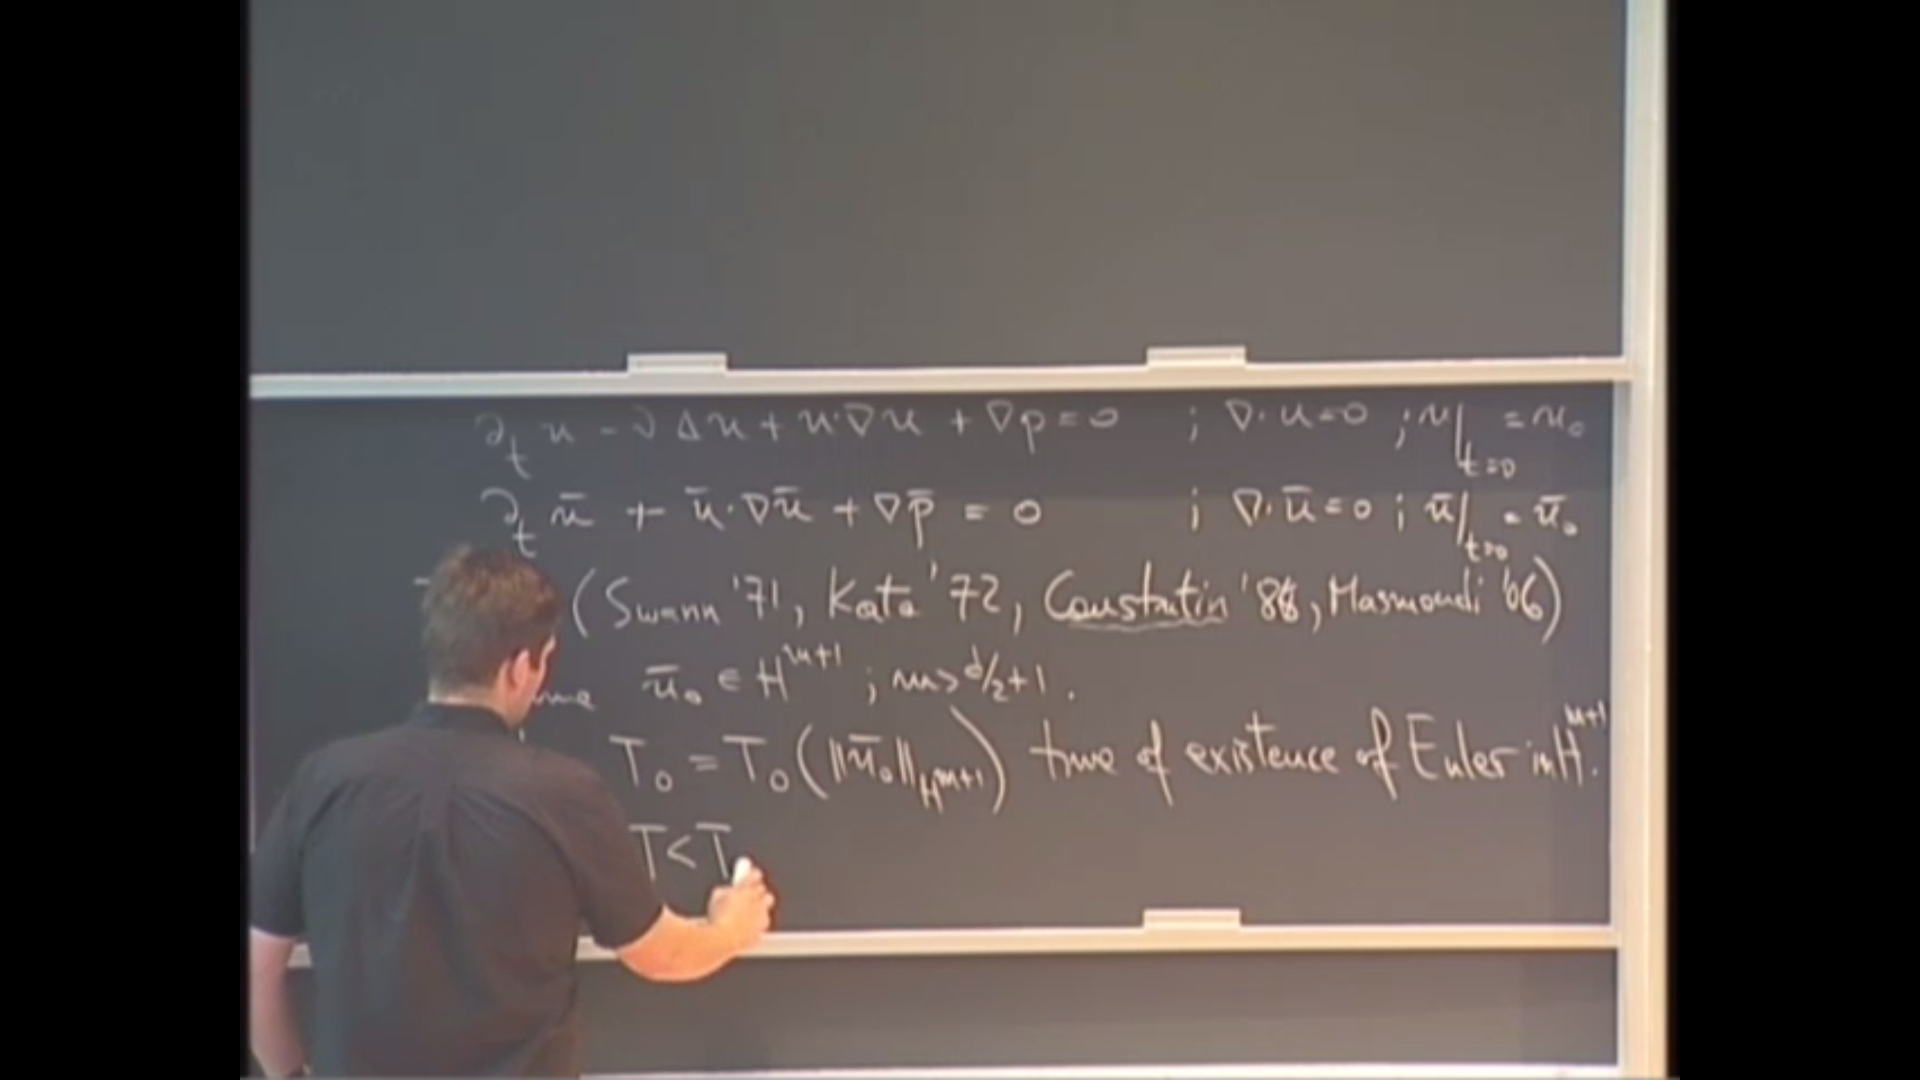 ∂_t u - ν Δu + u·∇u + ∇p = 0 ; ∇·u = 0 ; u|_{t=0} = u_0
∂_t ū + ū·∇ū + ∇p̄ = 0 ; ∇·ū = 0 ; ū|_{t=0} = ū_0
(Swann '71, Kato '72, Constantin '86, Masmoudi '06)
ū_0 ∈ H^{m+1} ; m > d/2 + 1 .
T_0 = T_0 (‖ū_0‖_{H^{m+1}}) time of existence of Euler in H^{m+1}.
T < T